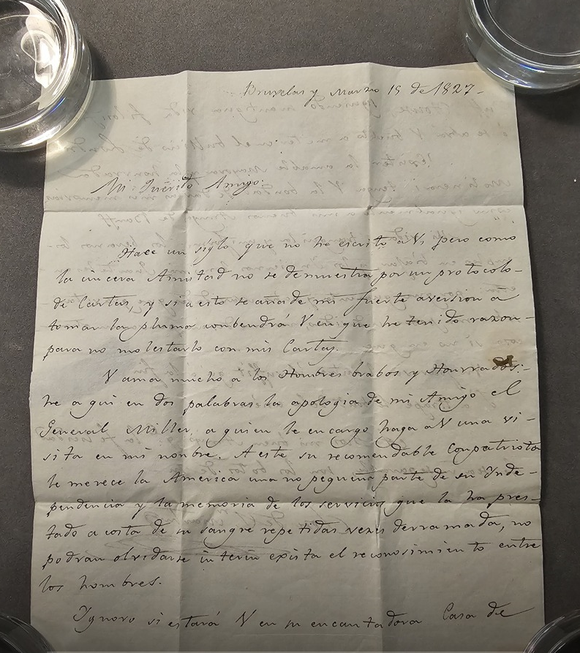 Bruxelas y Marzo 15 de 1827-
Mi Querido Amigo.
Hace un siglo que no he escrito á V, pero como
la sincera Amistad no se demuestra por un protocolo-
de Cartas, y si a esto se añade mi fuerte aversion á
tomar la pluma conbendrá V en que he tenido razon-
para no molestarlo con mis Cartas.
V ama mucho a los Hombres brabos y Honrrados:
he aqui en dos palabras la apologia de mi Amigo el
General Miller, a quien le encargo haga á V una vi-
sita en mi nonbre. A este su recomendable Conpatriota
le merece la America una no pequeña parte de su Inde-
pendencia y la memoria de los servicios que la ha pres-
tado a costa de su sangre repetidas vezes derramada, no
podran olvidarse in terin exista el reconosimiento entre
los hombres.
Ignoro si estará V en su encantadora Casa de